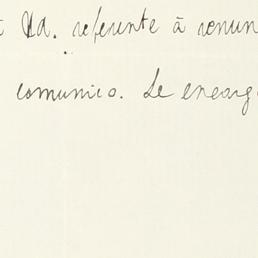 Ud. referente à renun
comunico. Le encarg